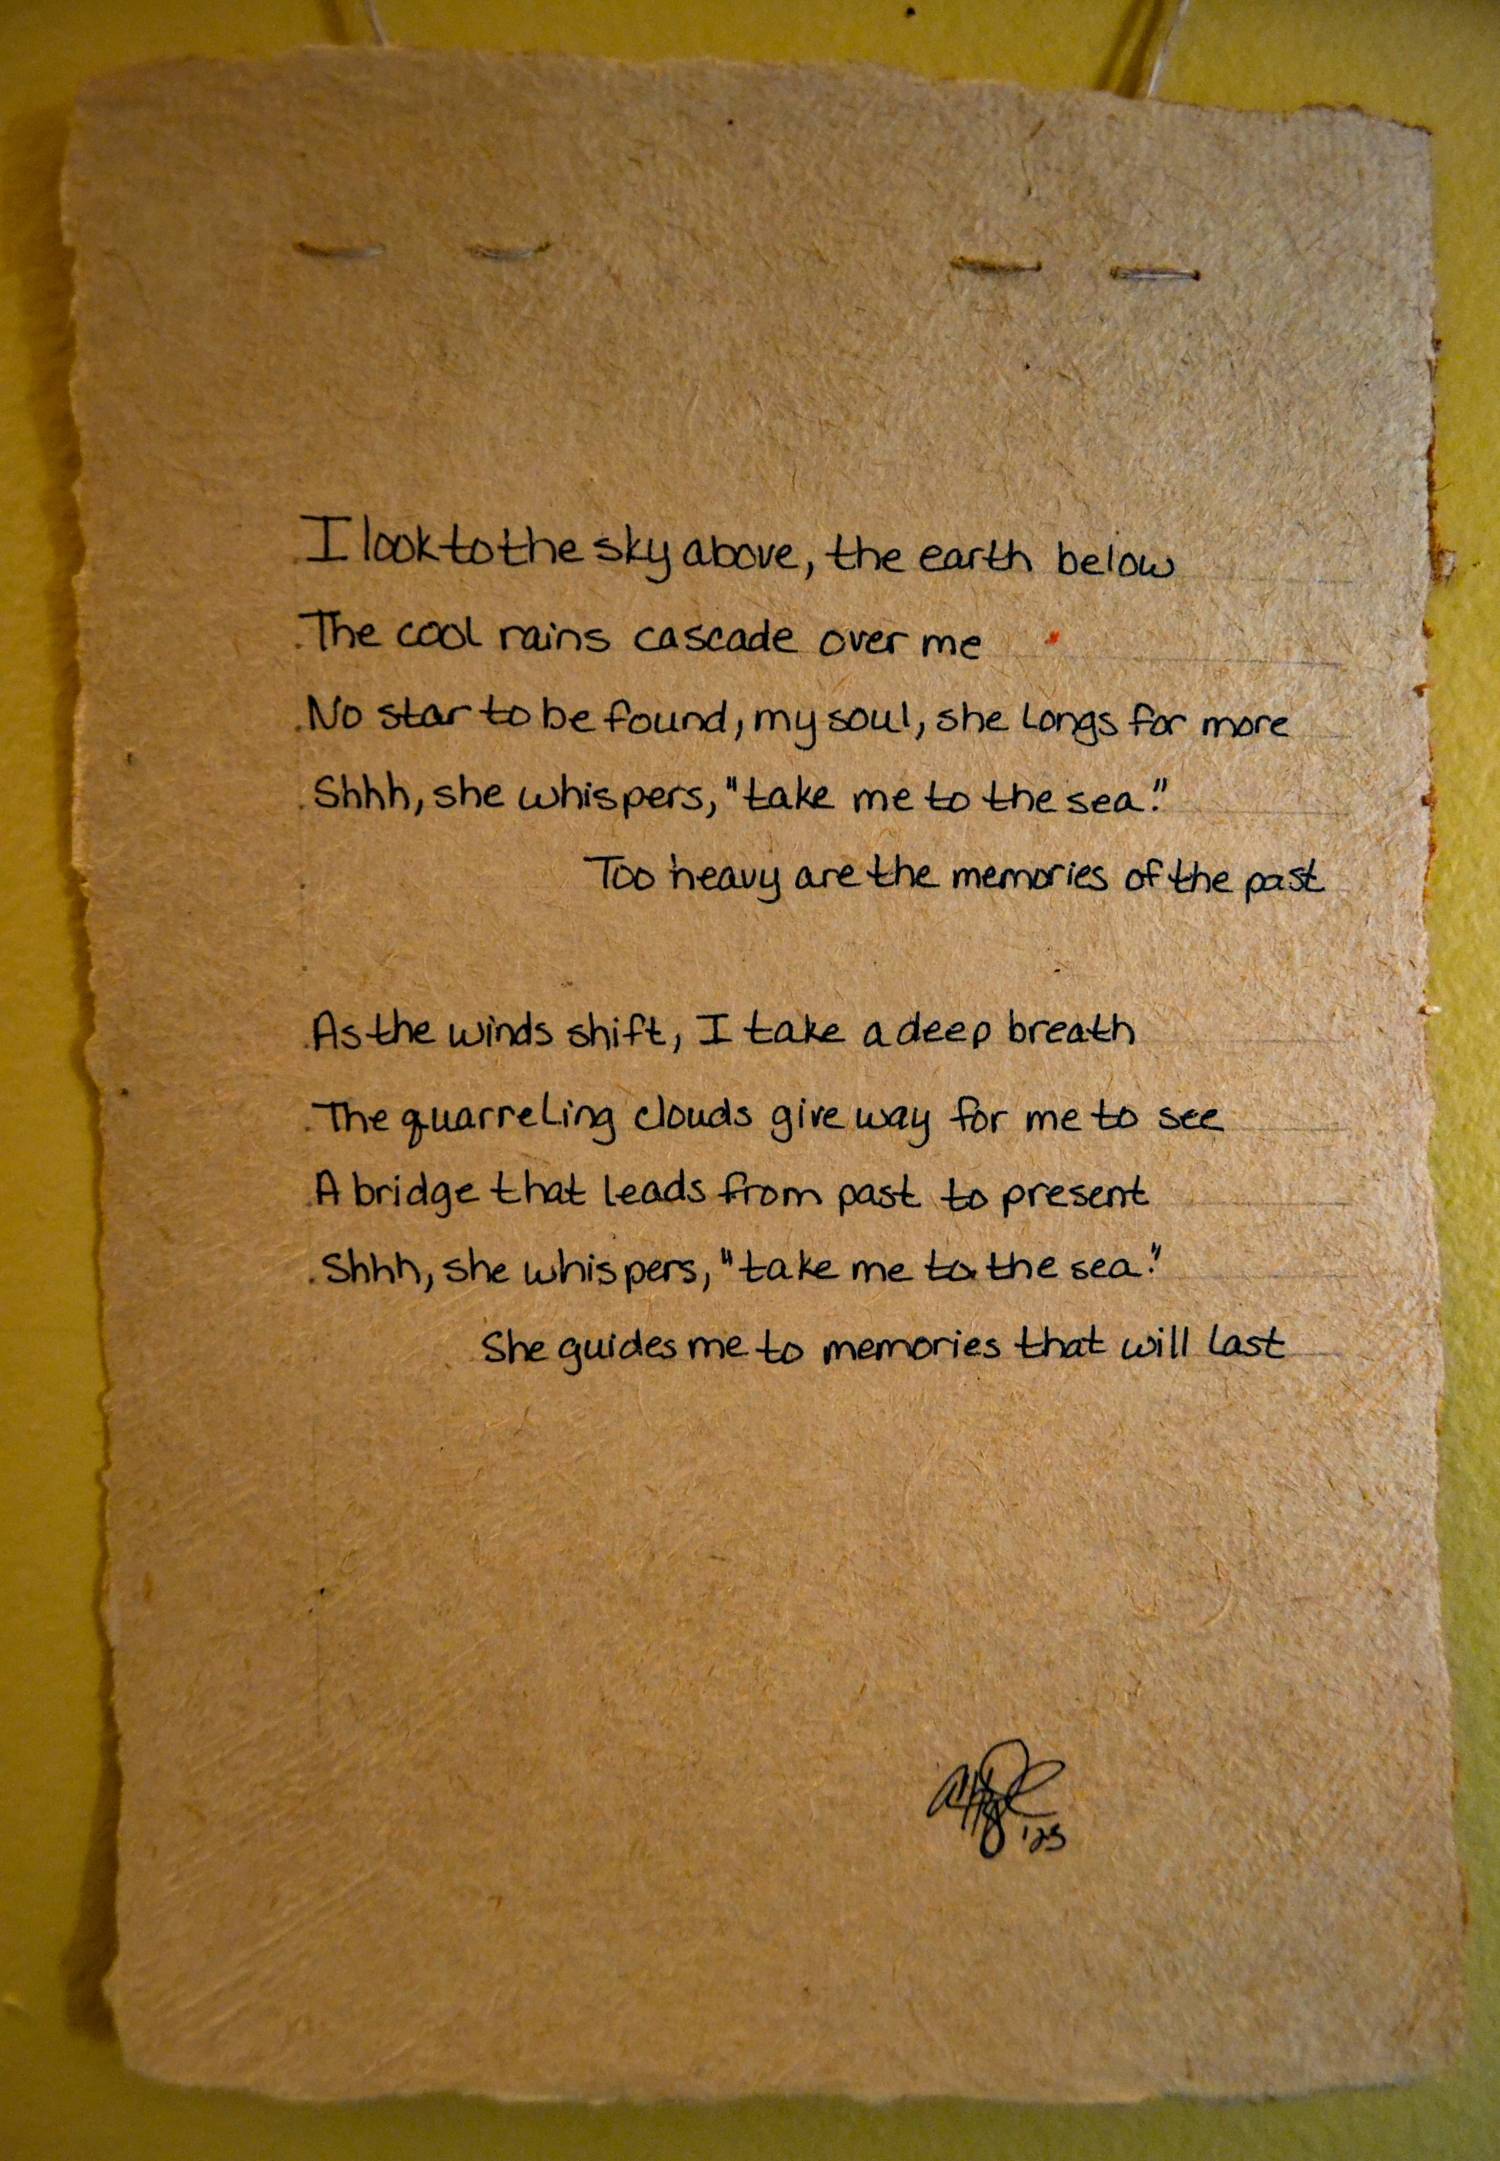 I look to the sky above, the earth below
The cool rains cascade over me
No star to be found, my soul, she longs for more
Shhh, she whispers, "take me to the sea."
Too heavy are the memories of the past
As the winds shift, I take a deep breath
The quarreling clouds give way for me to see
A bridge that leads from past to present
Shhh, she whispers, "take me to the sea."
She guides me to memories that will last
'25